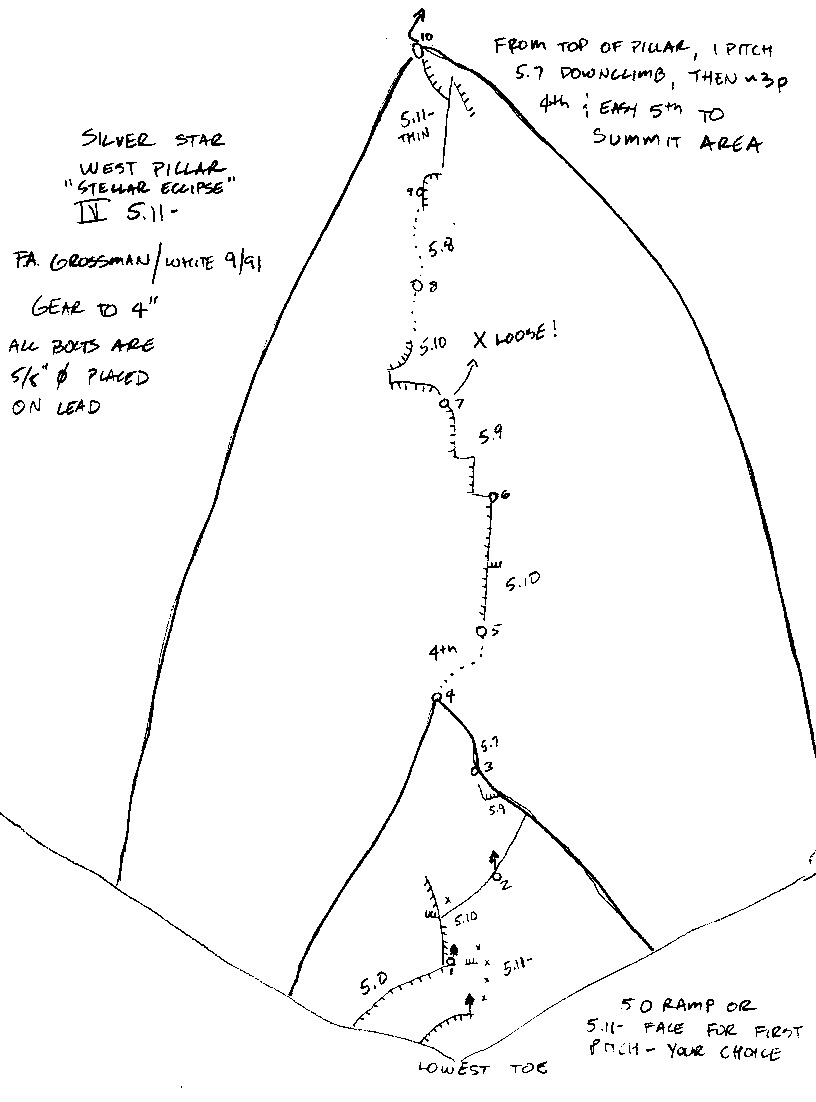 10
FROM TOP OF PILLAR, 1 PITCH
5.7 DOWNCLIMB, THEN ~3p
4th & EASY 5th TO
SUMMIT AREA
SILVER STAR
WEST PILLAR
"STELLAR ECLIPSE"
IV 5.11-
F.A. GROSSMAN/WHITE 9/91
GEAR TO 4"
ALL BOLTS ARE
5/8" Ø PLACED
ON LEAD
5.11-
THIN
9
5.8
8
5.10
X LOOSE!
7
5.9
6
5.10
5
4th
4
5.7
3
5.9
2
x
5.10
1
x
x
5.11-
x
x
5.0
5.0 RAMP OR
5.11- FACE FOR FIRST
PITCH - YOUR CHOICE
LOWEST TOE